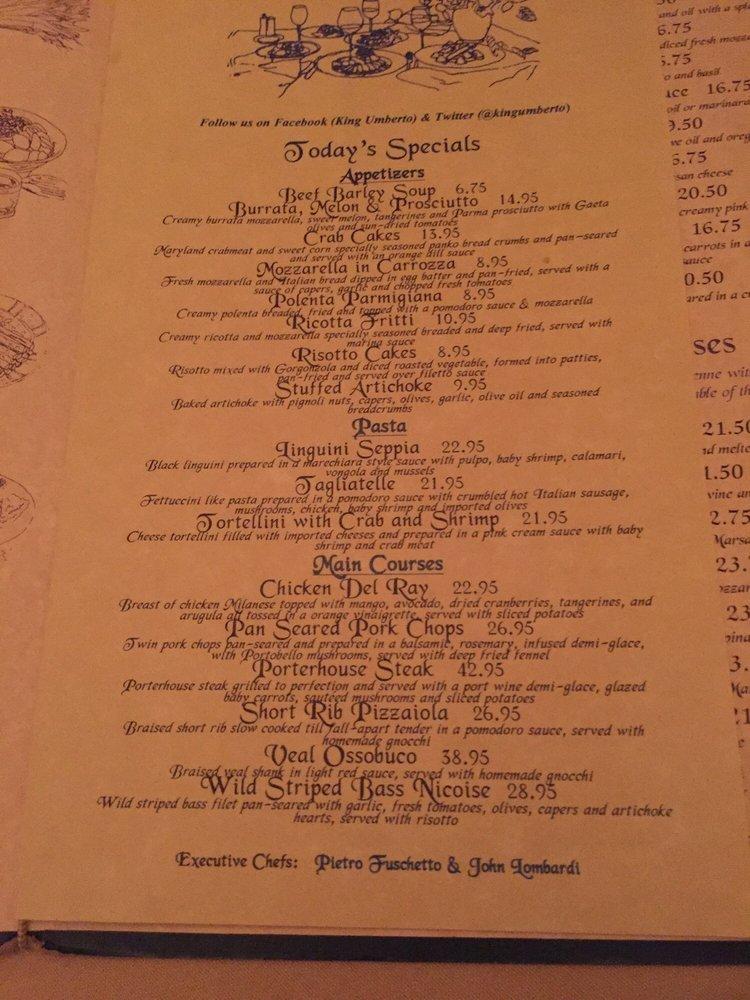 Follow us on Facebook (King Umberto) & Twitter (@kingumberto)
Today's Specials
Appetizers
Beef Barley Soup 6.75
Burrata, Melon & Prosciutto 14.95
Creamy burrata mozzarella, sweet melon, tangerines and Parma prosciutto with Gaeta
olives and sun-dried tomatoes
Crab Cakes 13.95
Maryland crabmeat and sweet corn specially seasoned panko bread crumbs and pan-seared
and served with an orange dill sauce
Mozzarella in Carrozza 8.95
Fresh mozzarella and Italian bread dipped in egg batter and pan-fried, served with a
sauce of capers, garlic and chopped fresh tomatoes
Polenta Parmigiana 8.95
Creamy polenta breaded, fried and topped with a pomodoro sauce & mozzarella
Ricotta Fritti 10.95
Creamy ricotta and mozzarella specially seasoned breaded and deep fried, served with
marina sauce
Risotto Cakes 8.95
Risotto mixed with Gorgonzola and diced roasted vegetable, formed into patties,
pan-fried and served over filetto sauce
Stuffed Artichoke 9.95
Baked artichoke with pignoli nuts, capers, olives, garlic, olive oil and seasoned
breadcrumbs
Pasta
Linguini Seppia 22.95
Black linguini prepared in a marechiara style sauce with pulpo, baby shrimp, calamari,
vongola and mussels
Tagliatelle 21.95
Fettuccini like pasta prepared in a pomodoro sauce with crumbled hot Italian sausage,
mushrooms, chicken, baby shrimp and imported olives
Tortellini with Crab and Shrimp 21.95
Cheese tortellini filled with imported cheeses and prepared in a pink cream sauce with baby
shrimp and crab meat
Main Courses
Chicken Del Ray 22.95
Breast of chicken Milanese topped with mango, avocado, dried cranberries, tangerines, and
arugula all tossed in a orange vinaigrette, served with sliced potatoes
Pan Seared Pork Chops 26.95
Twin pork chops pan-seared and prepared in a balsamic, rosemary, infused demi-glace,
with Portobello mushrooms, served with deep fried fennel
Porterhouse Steak 42.95
Porterhouse steak grilled to perfection and served with a port wine demi-glace, glazed
baby carrots, sauteed mushrooms and sliced potatoes
Short Rib Pizzaiola 26.95
Braised short rib slow cooked till fall-apart tender in a pomodoro sauce, served with
homemade gnocchi
Veal Ossobuco 38.95
Braised veal shank in light red sauce, served with homemade gnocchi
Wild Striped Bass Nicoise 28.95
Wild striped bass filet pan-seared with garlic, fresh tomatoes, olives, capers and artichoke
hearts, served with risotto
Executive Chefs: Pietro Fuschetto & John Lombardi
and oil with a
6.75
diced fresh
5.75
and basil
16.75
oil or marinara
9.50
oil and
6.75
cheese
20.50
creamy pink
16.75
carrots in a
0.50
in a
with
of
21.50
1.50
and
2.75
23